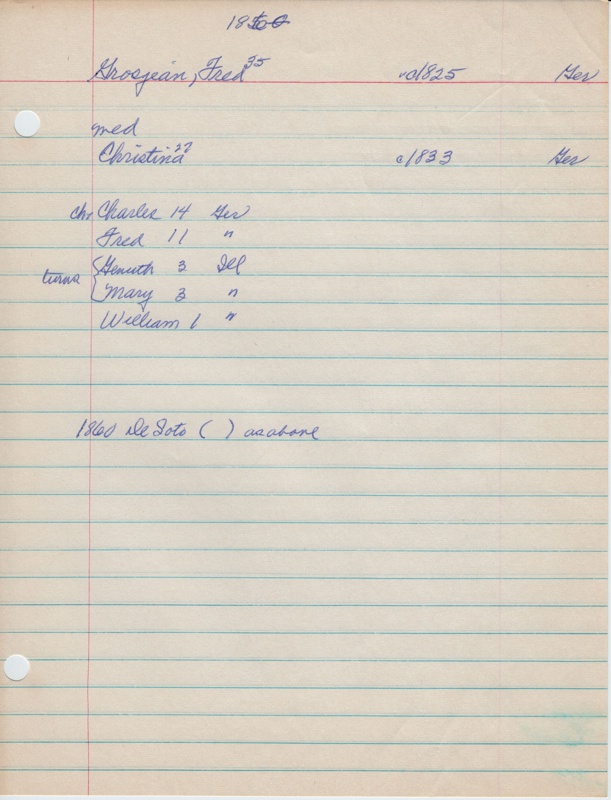 1860
Grosjean, Fred 35 c1825 Ger
med
Christina 27 c1833 Ger
ch. Charles 14 Ger
Fred 11 "
twins 3 Ill
Mary 3 "
William 1 "
1860 De Soto ( ) as above